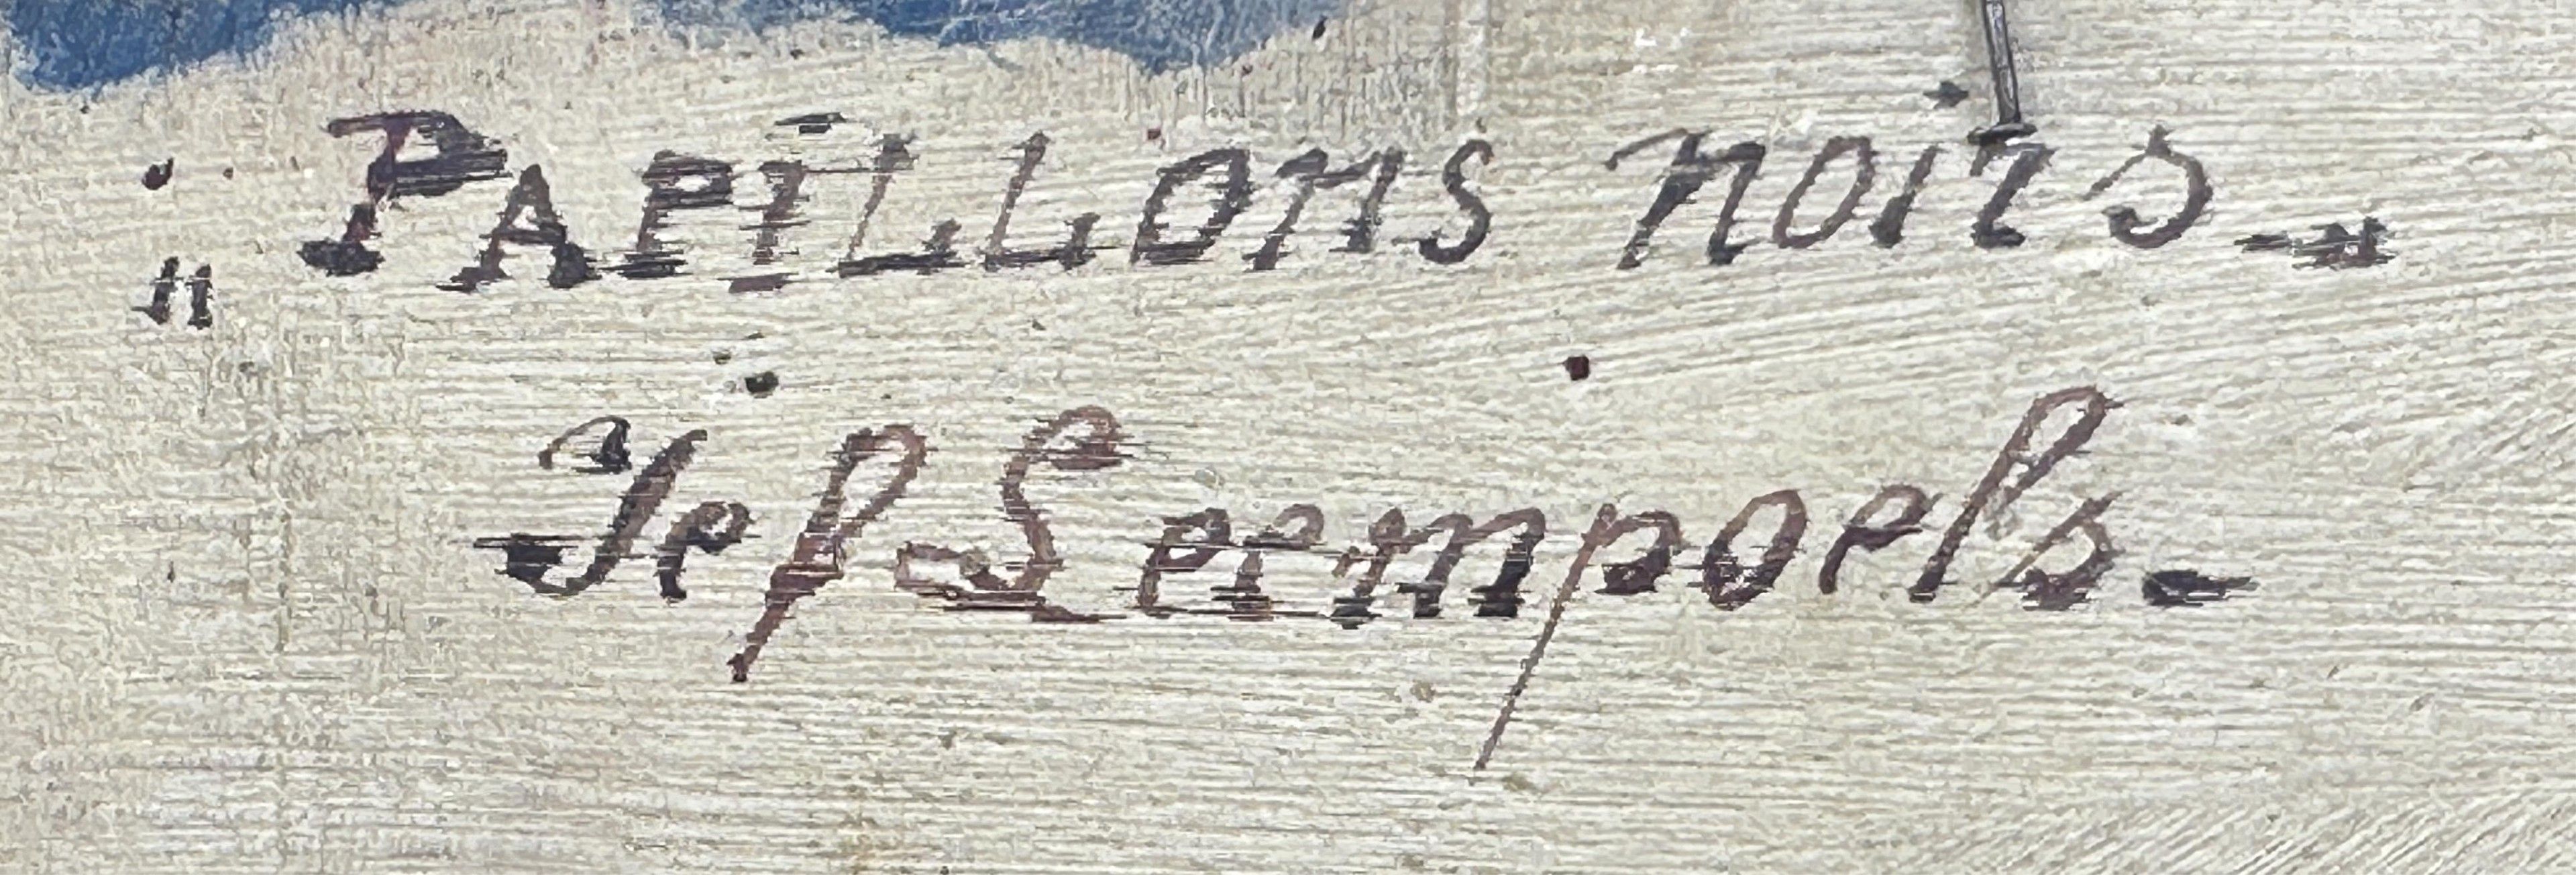 „ PAPILLONS noirs_"
Jef Leempoels.